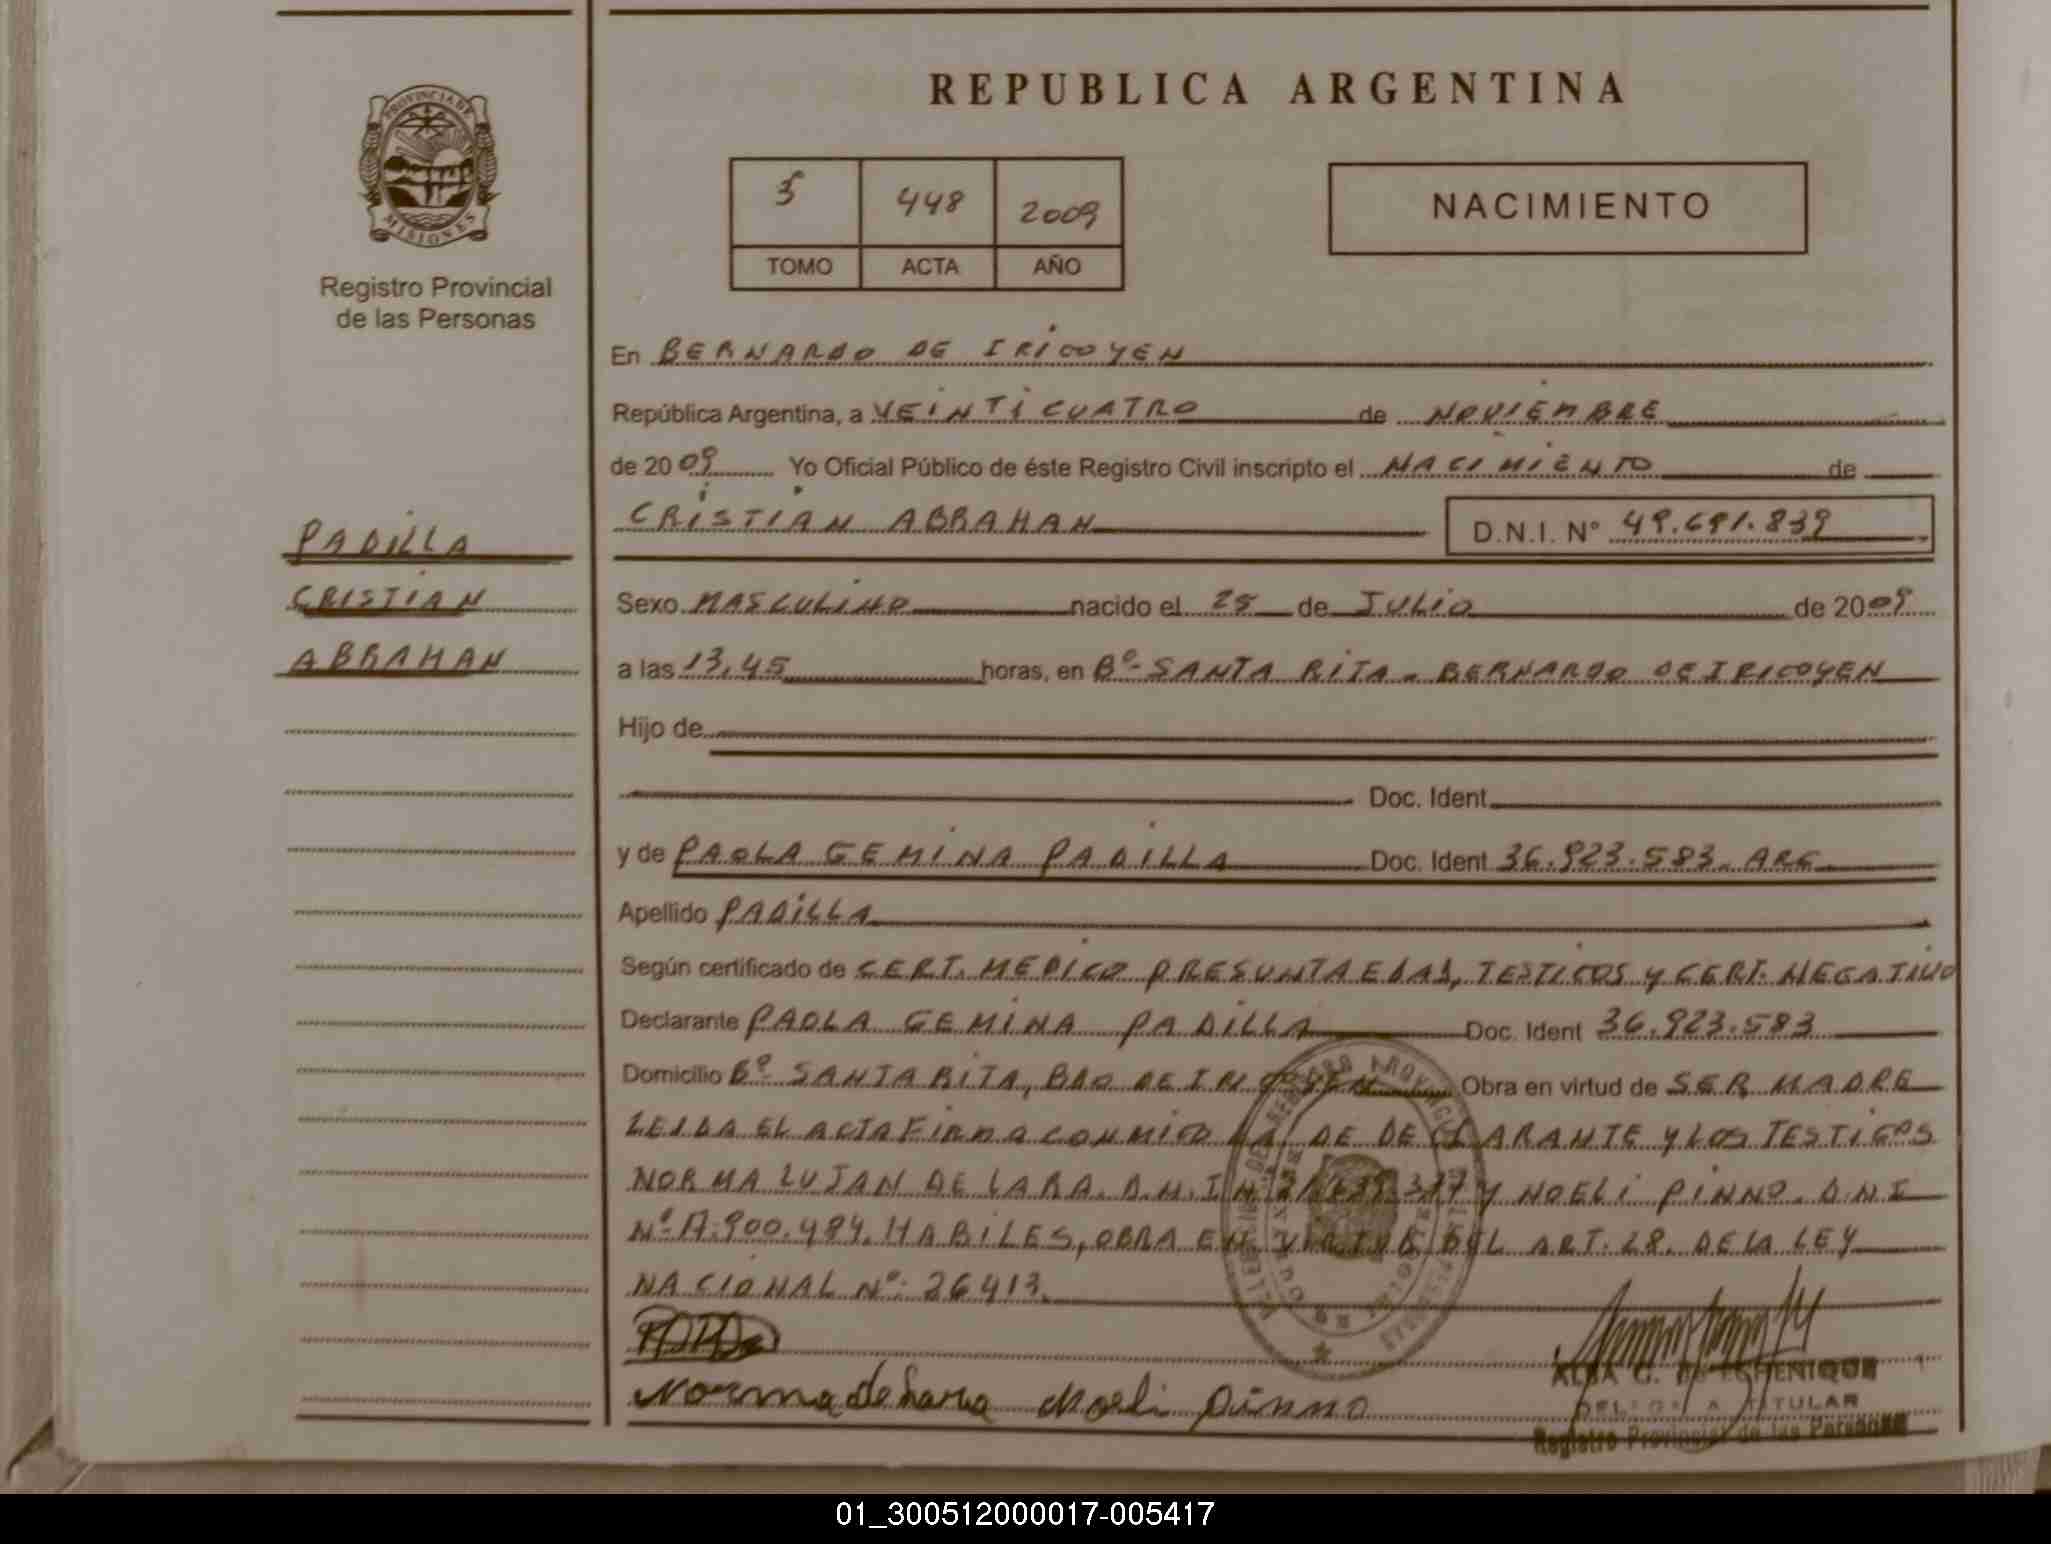 REPUBLICA ARGENTINA
PROVINCIA DE
MISIONES
Registro Provincial
de las Personas
3 448 2009
TOMO ACTA AÑO
NACIMIENTO
En BERNARDO DE IRIGOYEN
República Argentina, a VEINTICUATRO de NOVIEMBRE
de 2009 Yo Oficial Público de éste Registro Civil inscripto el NACIMIENTO de
CRISTIAN ABRAHAN D.N.I. Nº 49.691.839
PADILLA
CRISTIAN
ABRAHAN
Sexo MASCULINO nacido el 25 de JULIO de 2009
a las 13,45 horas, en Bº SANTA RITA - BERNARDO DE IRIGOYEN
Hijo de
Doc. Ident
y de PAOLA GEMINA PADILLA Doc. Ident 36.923.583. ARG
Apellido PADILLA
Según certificado de CERT. MEDICO PRESUNTA EDAD, TESTIGOS Y CERT. NEGATIVO
Declarante PAOLA GEMINA PADILLA Doc. Ident 36.923.583
Domicilio Bº SANTA RITA, BDO DE IRIGOYEN Obra en virtud de SER MADRE
LEIDA EL ACTA FIRMA CONMIGO LA DE DECLARANTE Y LOS TESTIGOS
NORMA LUJAN DE LARA. D.N.I Nº Y NOELI PINNO. D.N.I
Nº 17.900.484. HABILES, OBRA EN VIRTUD DEL ART. 28. DE LA LEY
NACIONAL Nº: 26413.
Norma de Lara Noeli Pinno
ALBA G. DE ECHENIQUE
DELEGADA TITULAR
Registro Provincial de las Personas
01_300512000017-005417